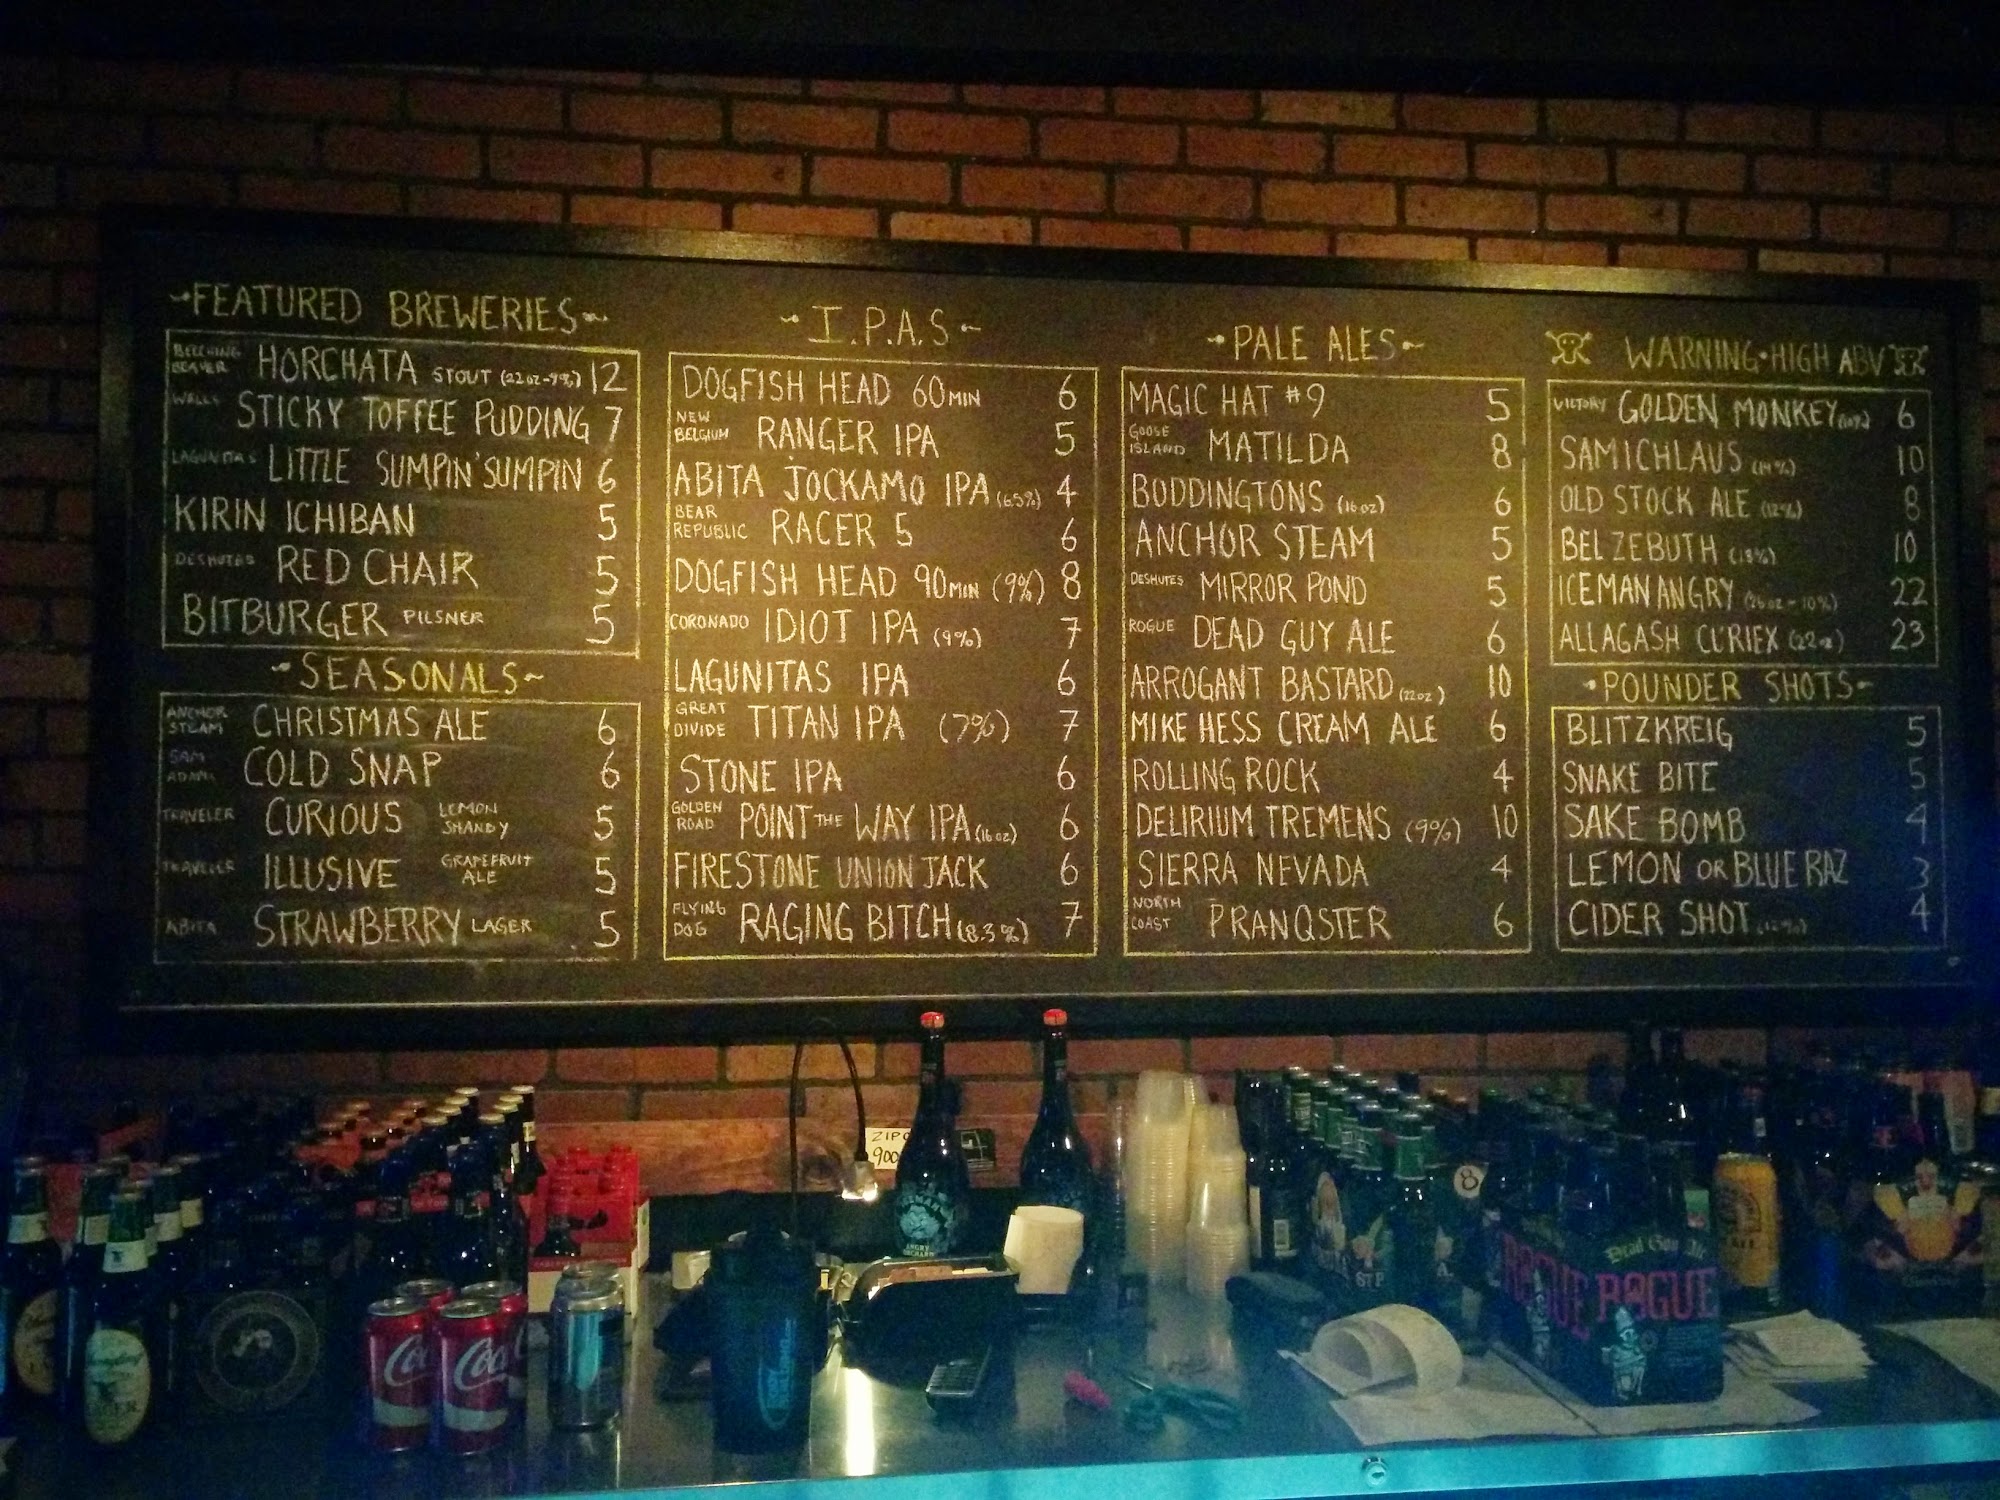 FEATURED BREWERIES
BELCHING BEAVER HORCHATA STOUT (22OZ-9%) 12
WELLS STICKY TOFFEE PUDDING 7
LAGUNITAS LITTLE SUMPIN' SUMPIN 6
KIRIN ICHIBAN 5
DESHUTES RED CHAIR 5
BITBURGER PILSNER 5
SEASONALS
ANCHOR STEAM CHRISTMAS ALE 6
SAM ADAMS COLD SNAP 6
TRAVELER CURIOUS LEMON SHANDY 5
TRAVELER ILLUSIVE GRAPEFRUIT ALE 5
ABITA STRAWBERRY LAGER 5
I.P.A.S
DOGFISH HEAD 60MIN 6
NEW BELGIUM RANGER IPA 5
ABITA JOCKAMO IPA (6.5%) 4
BEAR REPUBLIC RACER 5 6
DOGFISH HEAD 90MIN (9%) 8
CORONADO IDIOT IPA (9%) 7
LAGUNITAS IPA 6
GREAT DIVIDE TITAN IPA (7%) 7
STONE IPA 6
GOLDEN ROAD POINT THE WAY IPA (16oz) 6
FIRESTONE UNION JACK 6
FLYING DOG RAGING BITCH (8.3%) 7
PALE ALES
MAGIC HAT #9 5
GOOSE ISLAND MATILDA 8
BODDINGTONS (16oz) 6
ANCHOR STEAM 5
DESHUTES MIRROR POND 5
ROGUE DEAD GUY ALE 6
ARROGANT BASTARD (22oz) 10
MIKE HESS CREAM ALE 6
ROLLING ROCK 4
DELIRIUM TREMENS (9%) 10
SIERRA NEVADA 4
NORTH COAST PRANQSTER 6
WARNING•HIGH ABV
VICTORY GOLDEN MONKEY (10%) 6
SAMICHLAUS (14%) 10
OLD STOCK ALE (12%) 8
BELZEBUTH (13%) 10
ICEMAN ANGRY 22
ALLAGASH CURIEX (22oz) 23
POUNDER SHOTS
BLITZKREIG 5
SNAKE BITE 5
SAKE BOMB 4
LEMON OR BLUE RAZ 3
CIDER SHOT (12%) 4
ZIPC
900
ANGRY ORCHARD
8
Dead Guy Ale
ROGUE ROGUE
Coca
Coca